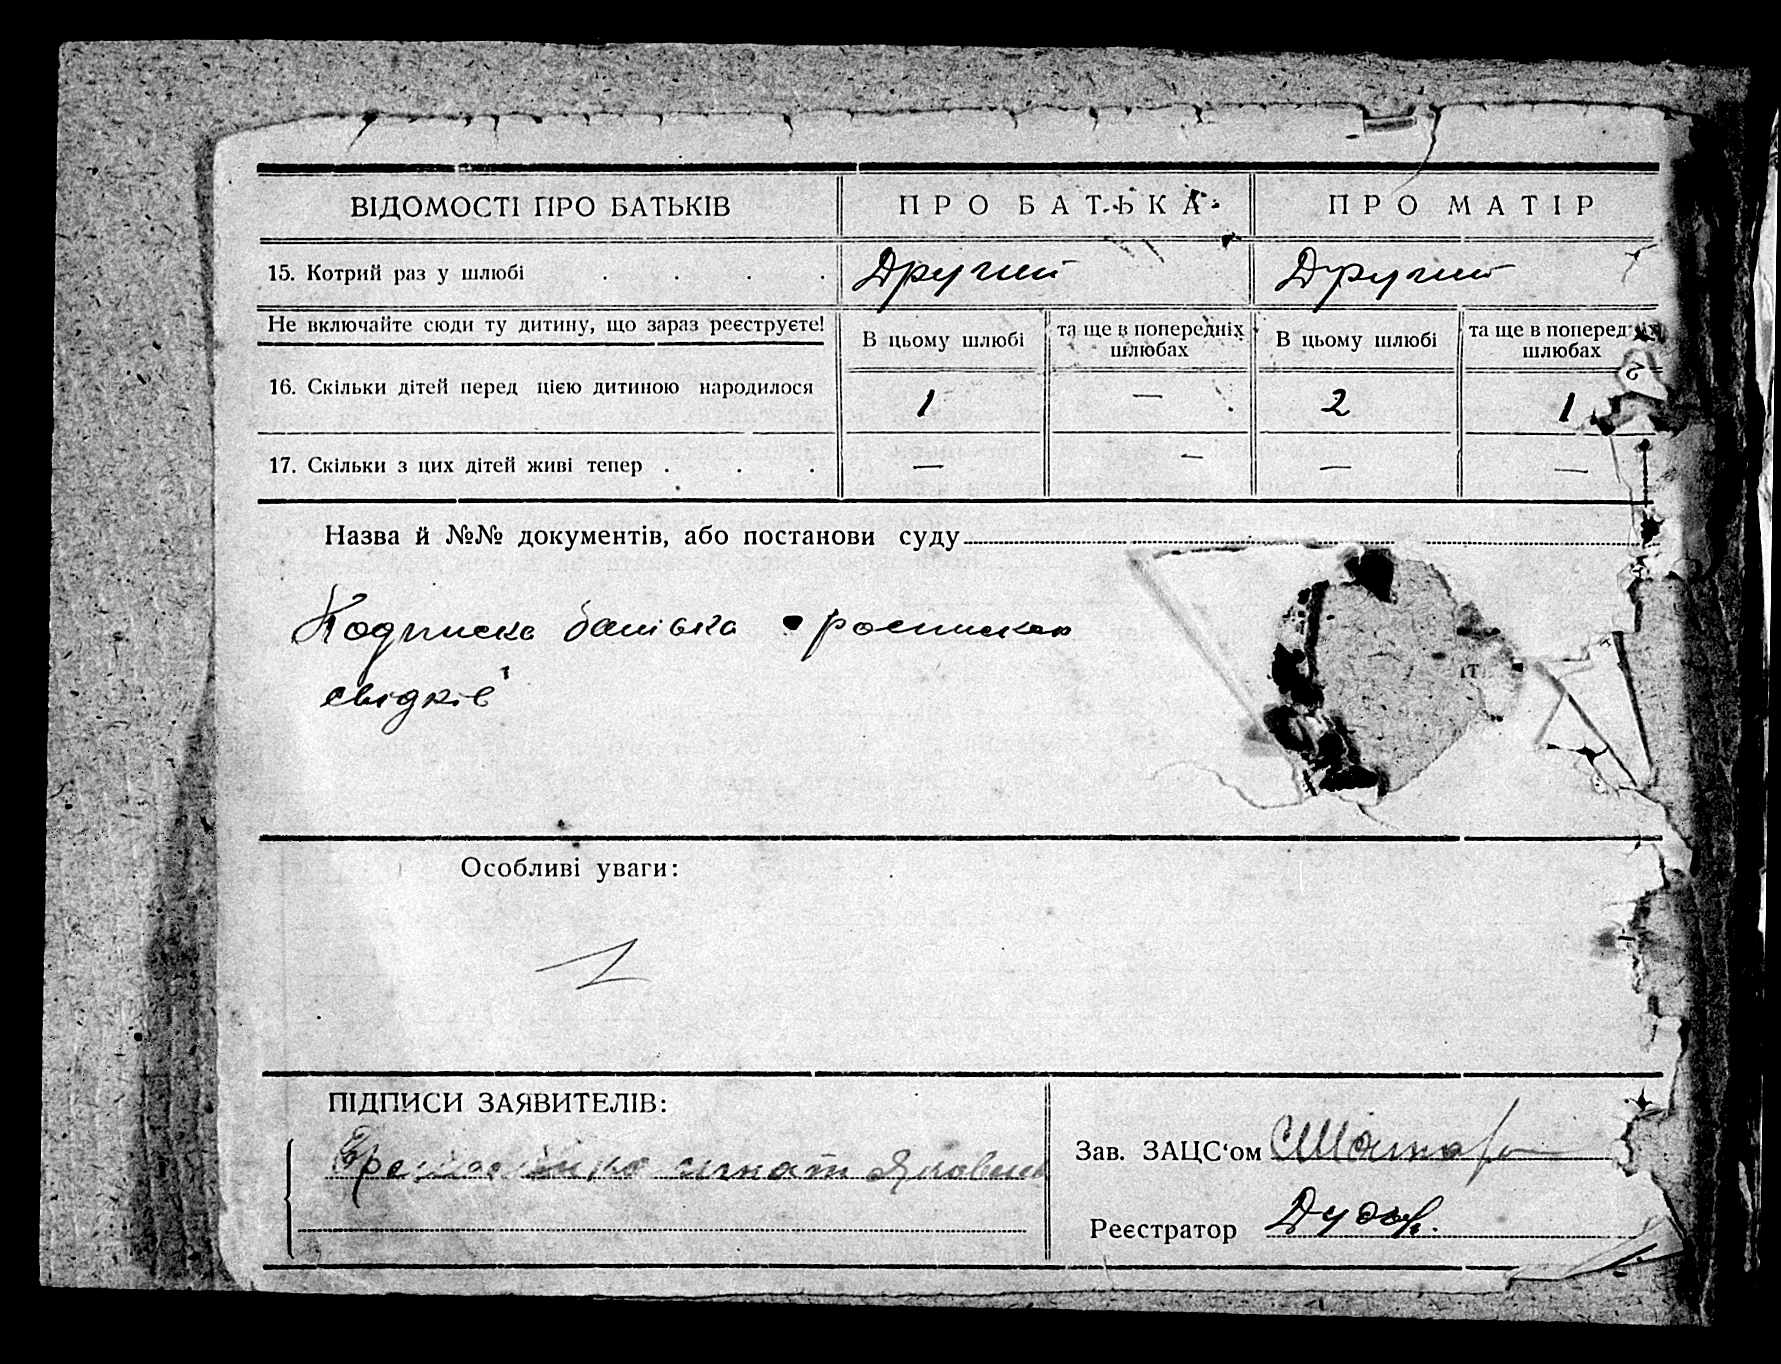 ВІДОМОСТІ ПРО БАТЬКІВ ПРО БАТЬКА ПРО МАТІР
15. Котрий раз у шлюбі . . . . Другий Другий
Не включайте сюди ту дитину, що зараз реєструєте! В цьому шлюбі та ще в попередніх шлюбах В цьому шлюбі та ще в попередніх шлюбах
16. Скільки дітей перед цією дитиною народилося 1 — 2 1
17. Скільки з цих дітей живі тепер . . . — — — —
Назва й №№ документів, або постанови суду
Подписка батька росписка
свідків
Особливі уваги:
ПІДПИСИ ЗАЯВИТЕЛІВ:
Зав. ЗАЦС‘ом
игнат Яковлев
Реєстратор